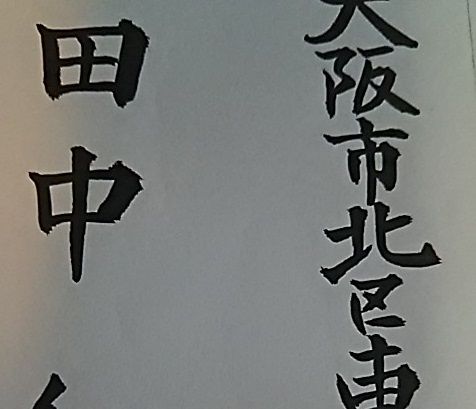 大阪市北区
田中